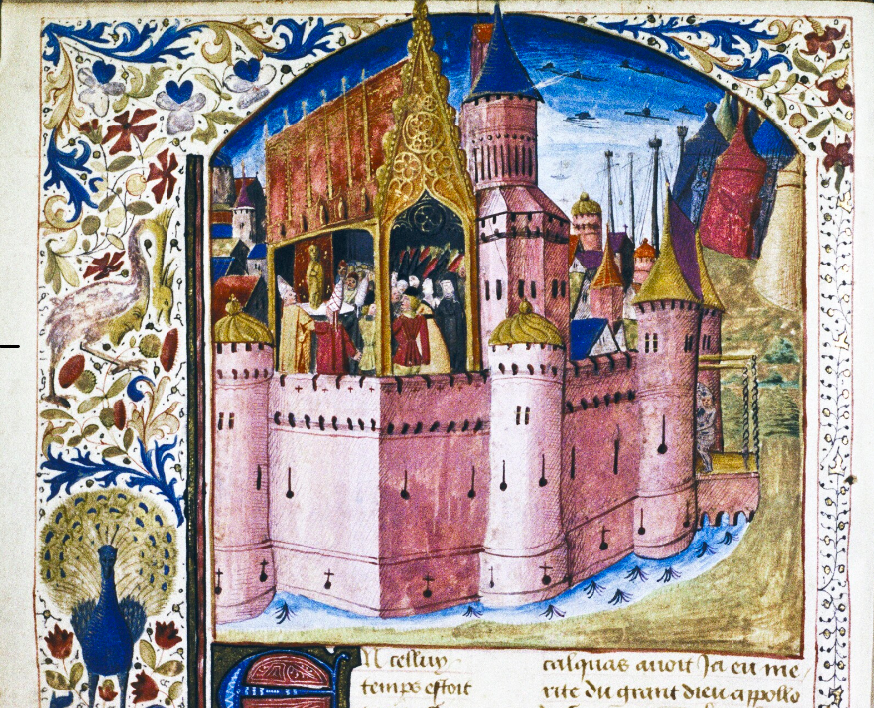 EN celluy
temps estoit
calquas auoit Ja eu me
rite du grant dieu appollo